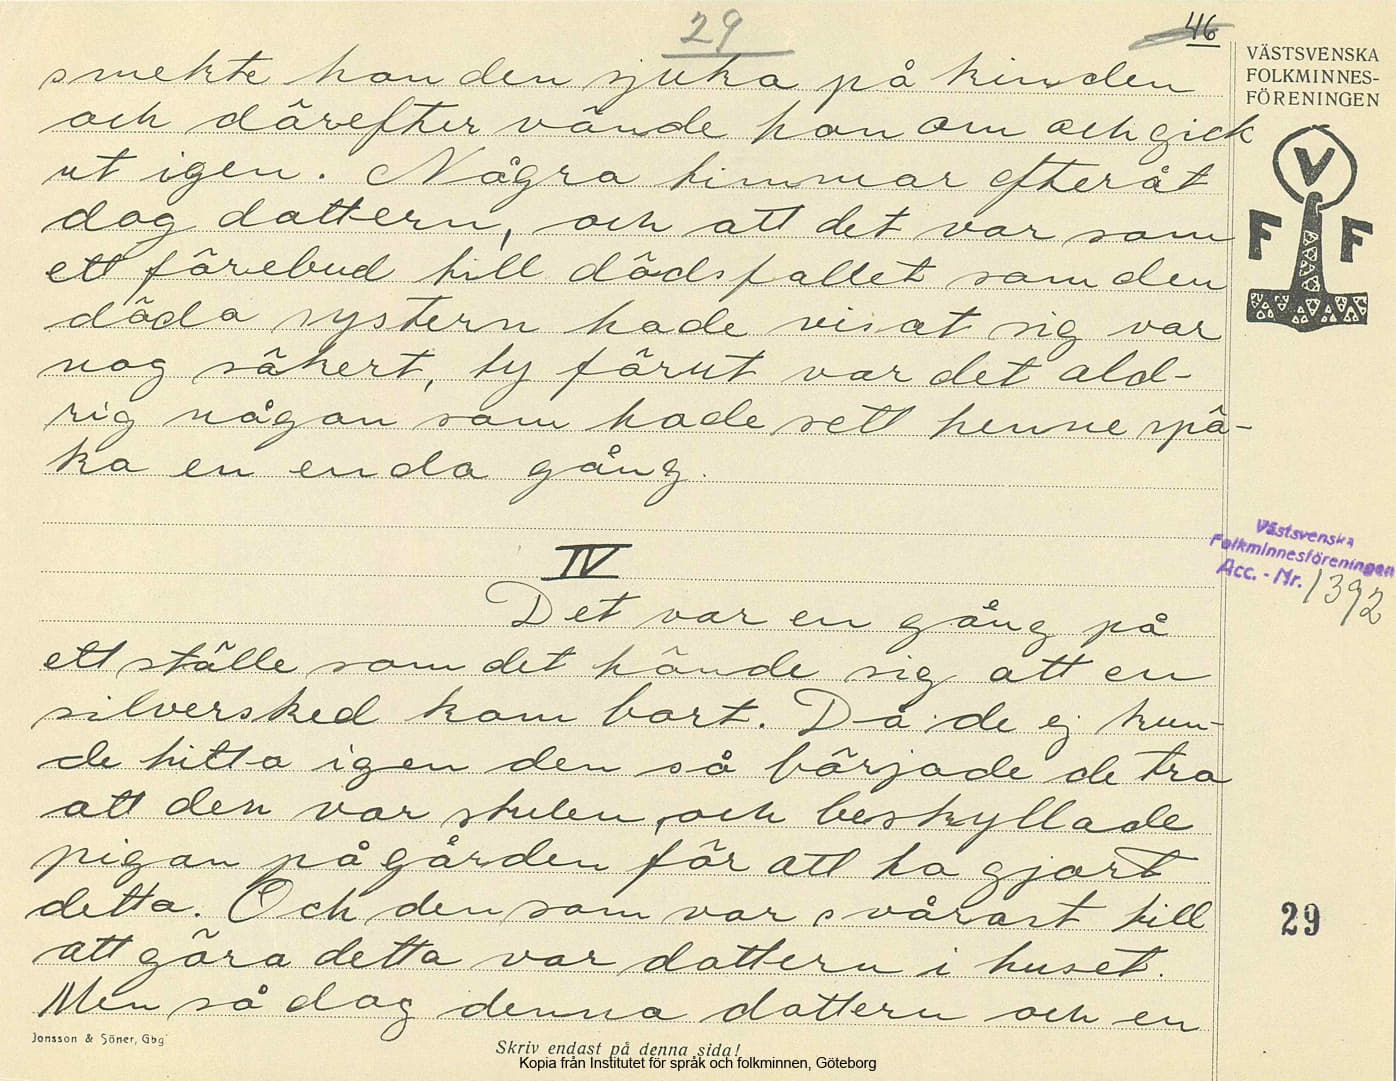 29
46
VÄSTSVENSKA
FOLKMINNES-
FÖRENINGEN
V
F F
smekte hon den sjuka på kinden
och därefter vände hon om och gick
ut igen. Några timmar efteråt
dog dottern, och att det var som
ett förebud till dödsfallet som den
döda systern hade visat sig var
nog säkert, ty förut var det ald-
rig någon som hade sett henne spö-
ka en enda gång.
Västsvenska
Folkminnesföreningen
Acc. - Nr. 1392
IV
Det var en gång på
ett ställe som det hände sig att en
silversked kom bort. Då de ej kun-
de hitta igen den så började de tro
att den var stulen, och beskyllade
pigan på gården för att ha gjort
detta. Och den som var svårast till
att göra detta var dottern i huset.
Men så dog denna dottern och en
29
Jonsson & Söner, Gbg
Skriv endast på denna sida!
Kopia från Institutet för språk och folkminnen, Göteborg